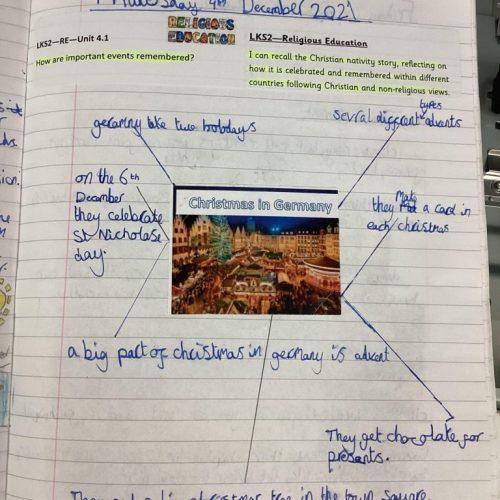 December 2021
RELIGIOUS
EDUCATION
LKS2—RE—Unit 4.1
How are important events remembered?
LKS2—Religious Education
I can recall the Christian nativity story, reflecting on
how it is celebrated and remembered within different
countries following Christian and non-religious views.
types
sevral different advants
geramny take two
on the 6th
December
they celebrate
St Nicholase
day.
Christmas in Germany
Make
they a card in
each christmas
a big part of christmas in germany is advent
They get chocolate for
presants.
christmas tree in the town square